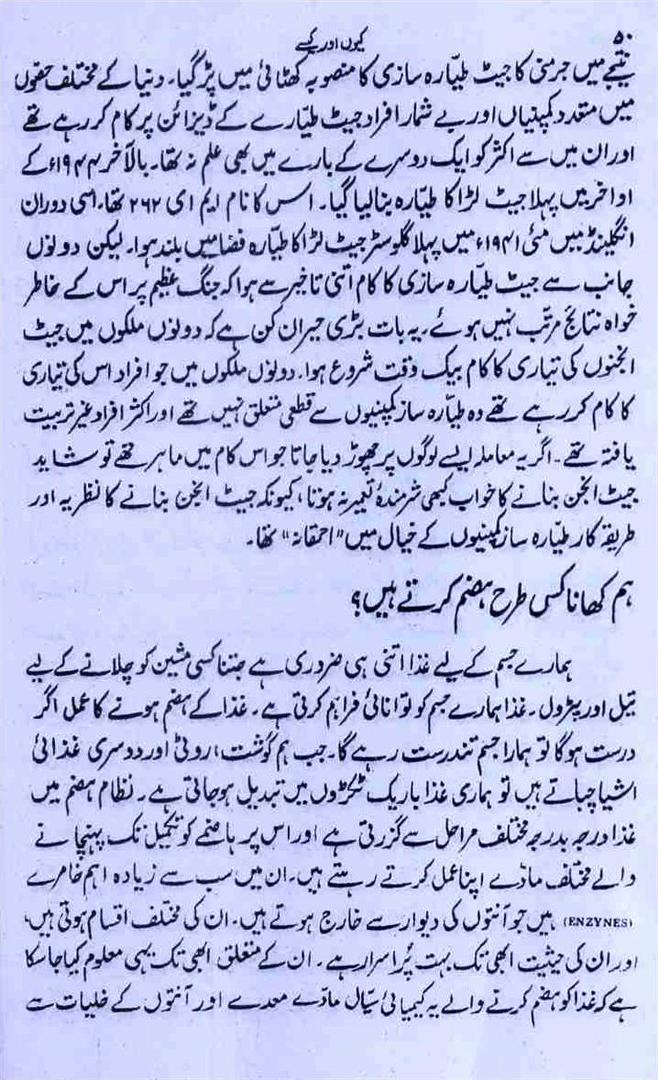 ۵۰
کیوں اور کیسے
نتیجے میں جرمنی کا جیٹ طیّارہ سازی کا منصوبہ کھٹائی میں پڑ گیا۔ دنیا کے مختلف حصّوں
میں متعدد کمپنیاں اور بے شمار افراد جیٹ طیّارے کے ڈیزائن پر کام کر رہے تھے
اور ان میں سے اکثر کو ایک دوسرے کے بارے میں بھی علم نہ تھا۔ بالآخر ۱۹۴۴ء کے
اواخر میں پہلا جیٹ لڑاکا طیّارہ بنا لیا گیا۔ اس کا نام ایم ای ۲۶۲ تھا۔ اسی دوران
انگلینڈ میں مئی ۱۹۴۱ء میں پہلا گلوسٹر جیٹ لڑاکا طیّارہ فضا میں بلند ہوا۔ لیکن دونوں
جانب سے جیٹ طیّارہ سازی کا کام اتنی تاخیر سے ہوا کہ جنگ عظیم پر اس کے خاطر
خواہ نتائج مرتّب نہیں ہوئے۔ یہ بات بڑی حیران کن ہے کہ دونوں ملکوں میں جیٹ
انجنوں کی تیاری کا کام بیک وقت شروع ہوا۔ دونوں ملکوں میں جو افراد اس کی تیاری
کا کام کر رہے تھے وہ طیّارہ ساز کمپنیوں سے قطعی متعلق نہیں تھے اور اکثر افراد غیر تربیت
یافتہ تھے۔ اگر یہ معاملہ ایسے لوگوں پر چھوڑ دیا جاتا جو اس کام میں ماہر تھے تو شاید
جیٹ انجن بنانے کا خواب کبھی شرمندۂ تعبیر نہ ہوتا، کیونکہ جیٹ انجن بنانے کا نظریہ اور
طریقہ کار طیّارہ ساز کمپنیوں کے خیال میں "احمقانہ" تھا۔
ہم کھانا کسی طرح ہضم کرتے ہیں؟
ہمارے جسم کے لیے غذا اتنی ہی ضروری ہے جتنا کسی مشین کو چلانے کے لیے
تیل اور پٹرول۔ غذا ہمارے جسم کو توانائی فراہم کرتی ہے۔ غذا کے ہضم ہونے کا عمل اگر
درست ہوگا تو ہمارا جسم تندرست رہے گا۔ جب ہم گوشت، روٹی اور دوسری غذائی
اشیا چباتے ہیں تو ہماری غذا باریک ٹکڑوں میں تبدیل ہو جاتی ہے۔ نظام ہضم میں
غذا درجہ بدرجہ مختلف مراحل سے گزرتی ہے اور اس پر ہاضمے کو تکمیل تک پہنچانے
والے مختلف مادّے اپنا عمل کرتے رہتے ہیں۔ ان میں سب سے زیادہ اہم خامرے
(ENZYNES) ہیں جو آنتوں کی دیوار سے خارج ہوتے ہیں۔ ان کی مختلف اقسام ہوتی ہیں،
اور ان کی حیثیت ابھی تک بہت پُراسرار ہے۔ ان کے متعلق ابھی تک یہی معلوم کیا جا سکا
ہے کہ غذا کو ہضم کرنے والے یہ کیمیائی سیّال مادّے معدے اور آنتوں کے خلیات سے